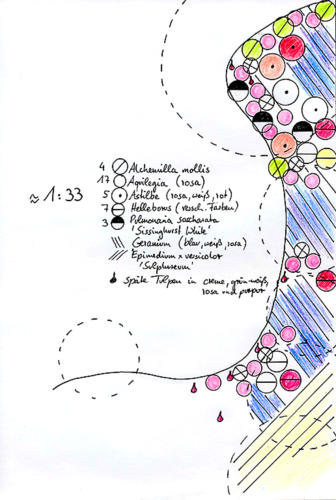 ≈ 1:33
4 Alchemilla mollis
17 Aquilegia (rosa)
5 Astilbe (rosa, weiß, rot)
7 Helleborus (versch. Farben)
3 Pulmonaria saccharata
'Sissinghurst White'
Geranium (blau, weiß, rosa)
Epimedium x versicolor
'Sulphureum'
späte Tulpen in creme, grün-weiß,
rosa und purpur